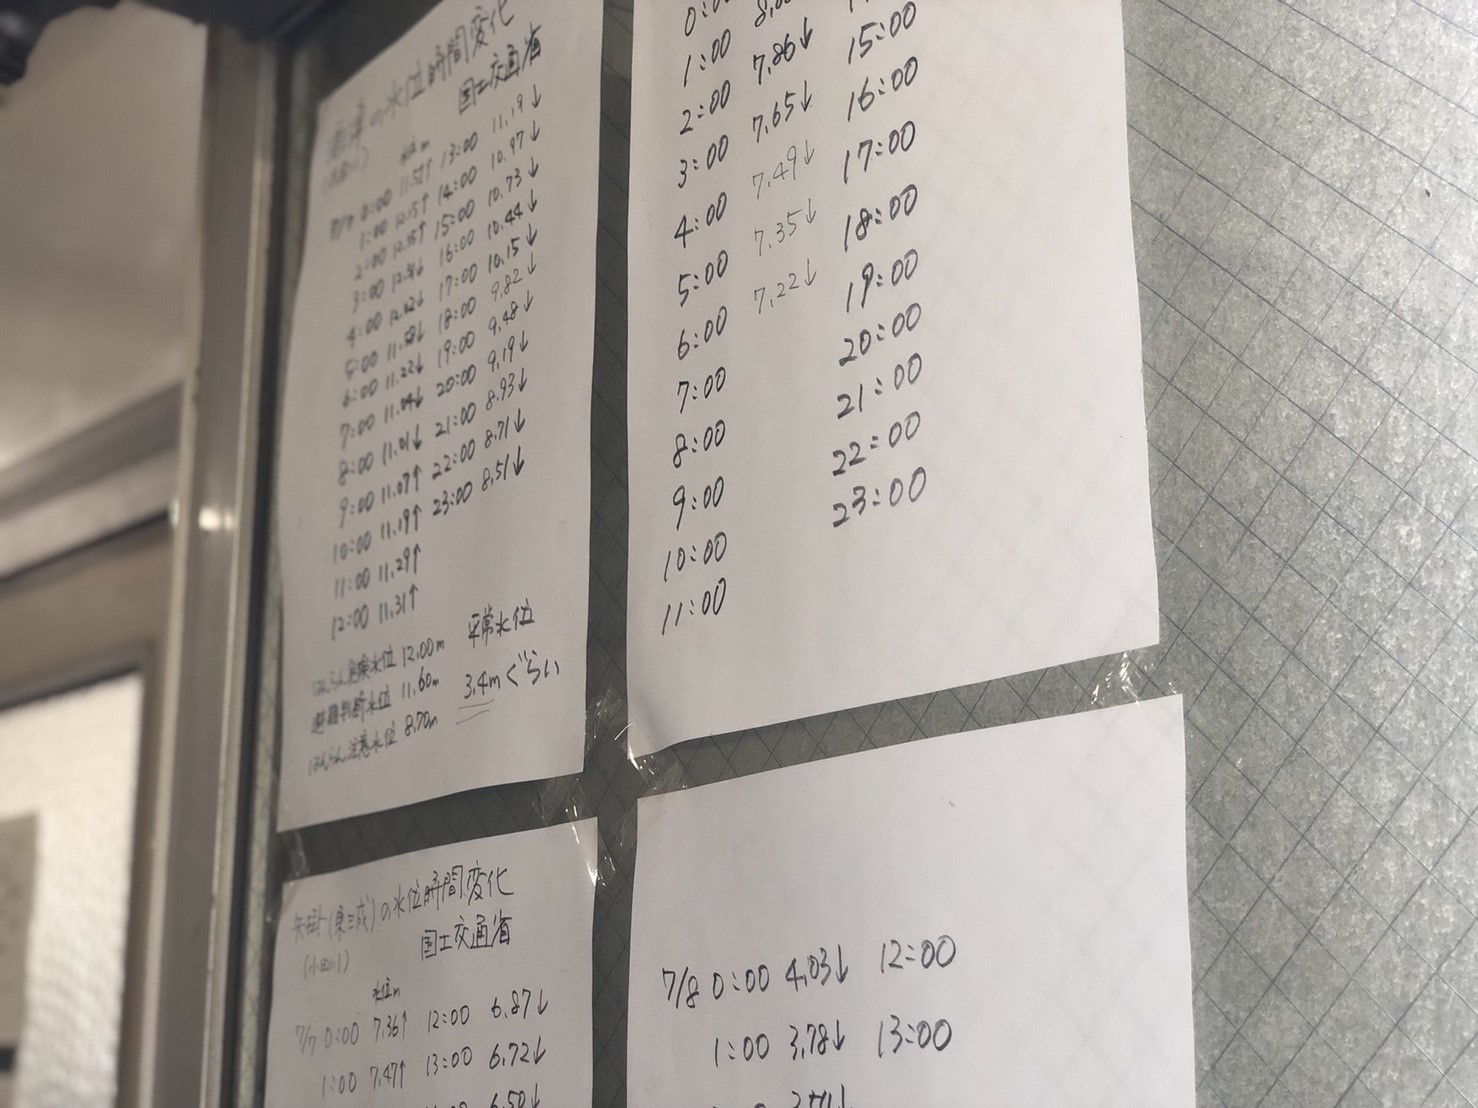 の水位時間変化
国土交通省
水位m
7/7 0:00 11.52↑ 13:00 11.19↓
1:00 12.15↑ 14:00 10.97↓
2:00 12.35↑ 15:00 10.73↓
3:00 16:00 10.44↓
4:00 12.02↓ 17:00 10.15↓
5:00 18:00 9.82↓
6:00 11.22↓ 19:00 9.48↓
7:00 11.04↓ 20:00 9.19↓
8:00 11.01↓ 21:00 8.93↓
9:00 11.07↑ 22:00 8.71↓
10:00 11.19↑ 23:00 8.51↓
11:00 11.29↑
12:00 11.31↑
はんらん危険水位 12.00m
避難判断水位 11.60m
はんらん注意水位 8.70m
平常水位
3.4mぐらい
0:00
1:00 7.86↓ 15:00
2:00 7.65↓ 16:00
3:00 7.49↓ 17:00
4:00 7.35↓ 18:00
5:00 7.22↓ 19:00
6:00 20:00
7:00 21:00
8:00 22:00
9:00 23:00
10:00
11:00
矢掛(東三成)の水位時間変化
国土交通省
(小田川)
水位m
7/7 0:00 7.36↑ 12:00 6.87↓
1:00 7.47↑ 13:00 6.72↓
6.50↓
7/8 0:00 4.03↓ 12:00
1:00 3.78↓ 13:00